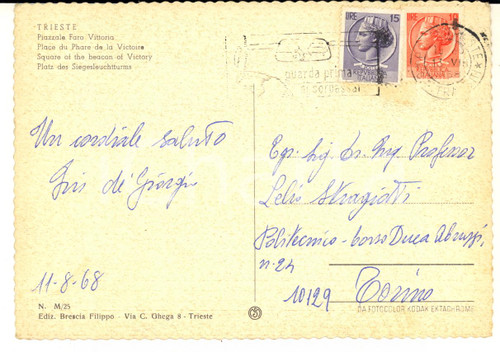 TRIESTE
Piazzale Faro Vittoria
Place du Phare de la Victoire
Square of the beacon of Victory
Platz des Siegesleuchtturms
LIRE 15
LIRE 10
guarda prima
di sorpassar
Un cordiale saluto
de Giorgi
11-8-68
N. M/25
Ediz. Brescia Filippo - Via C. Ghega 8 - Trieste
Egr. Sig. Dr. Ing. Professor
Lelio Stragiotti
Politecnico - Corso Duca Abruzzi,
n-24
10129 Torino
DA FOTOCOLOR KODAK EKTACHROME